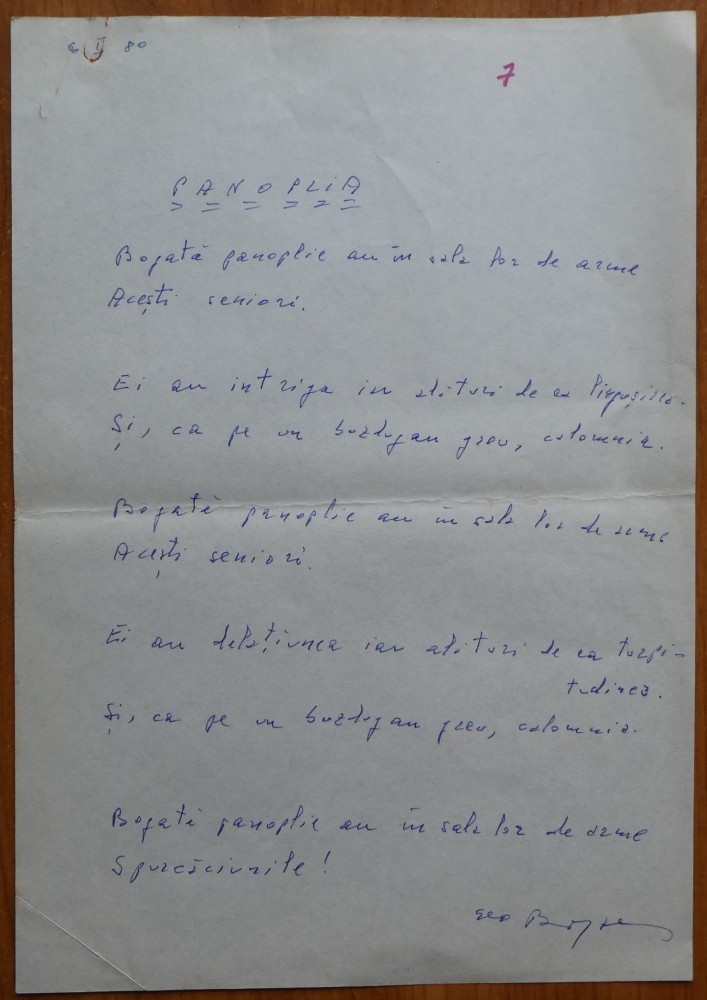 6 I 80
7
PANOPLIA
Bogată panoplie au în sala lor de arme
Acești seniori.
Ei au intriga iar alături de ea lingușirea.
Și, ca pe un buzdugan greu, calomnia.
Bogată panoplie au în sala lor de arme
Acești seniori.
Ei au delațiunea iar alături de ea turpi-
tudinea.
Și, ca pe un buzdugan greu, calomnia.
Bogată panoplie au în sala lor de arme
Spurcăciunile!
Geo Bogza